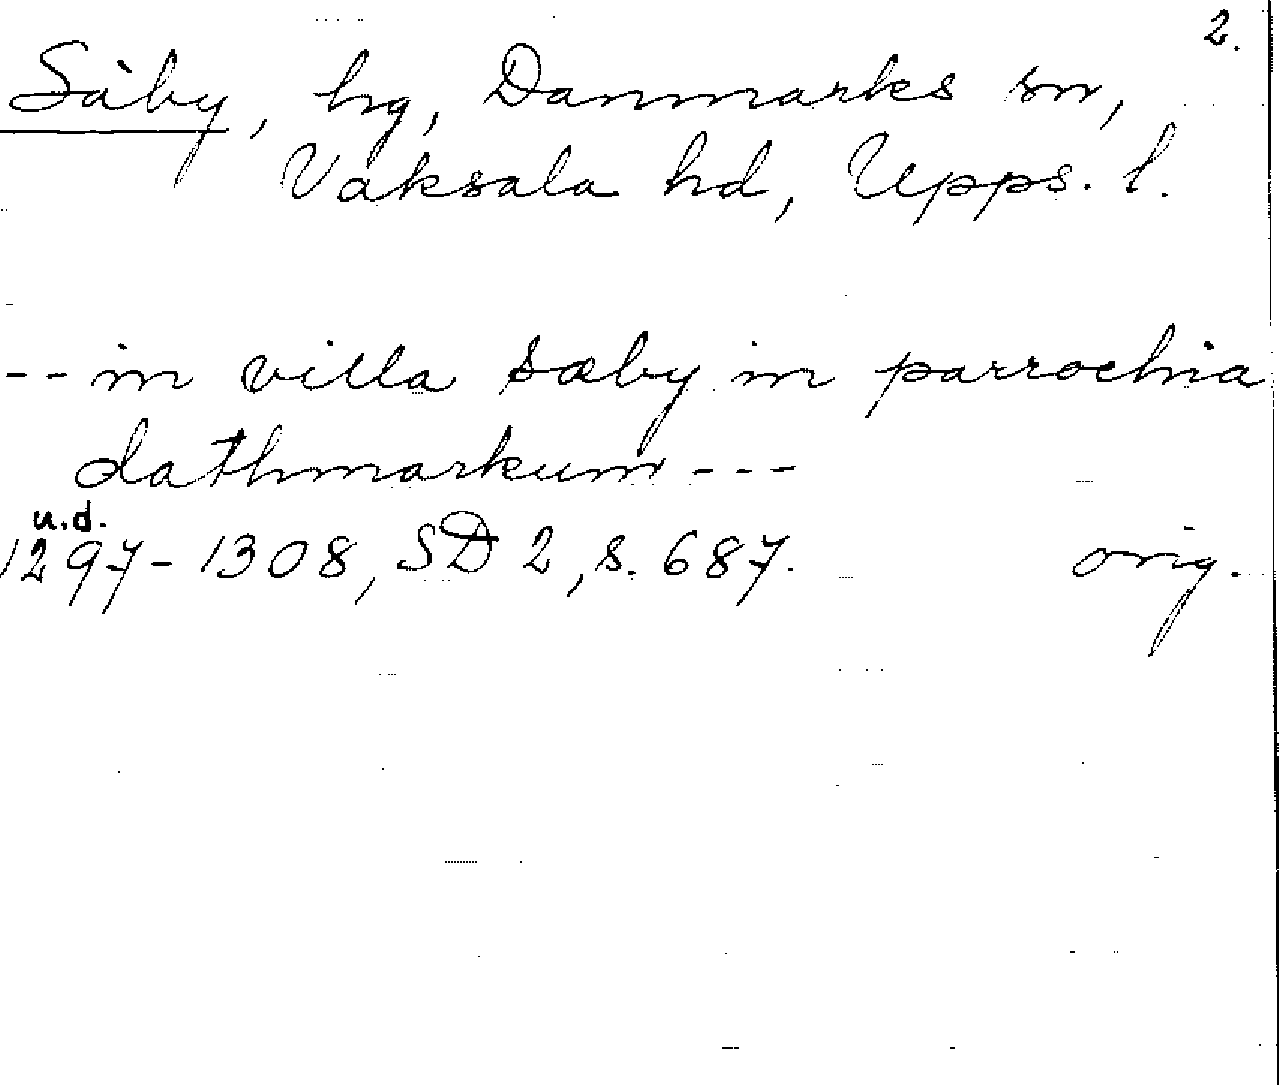 2.
Säby, hg, Danmarks sn,
Vaksala hd, Upps. l.
-- in villa sæby in parrochia
dathmarkum ---
u.d.
1297-1308, SD 2, s. 687. orig.